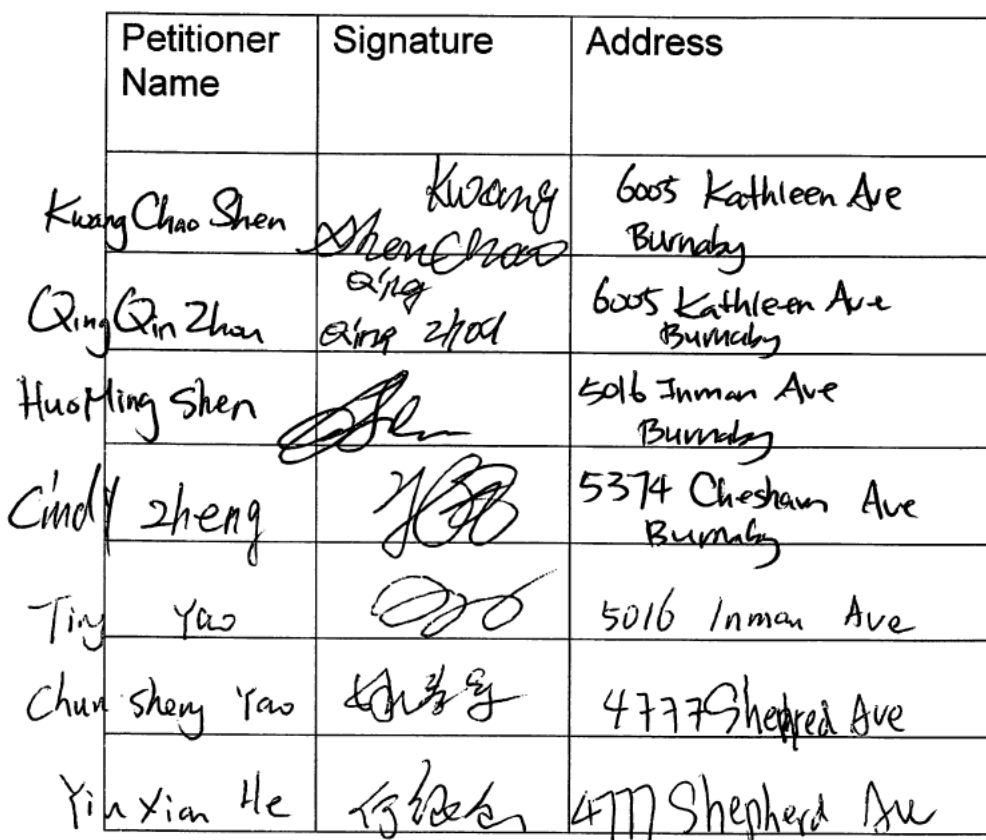 Petitioner Signature Address
Name
Kwang Chao Shen Kwang 6005 Kathleen Ave
Shen Chao Burnaby
Qing Qin Zhou Qing 6005 Kathleen Ave
Qing Zhou Burnaby
HuoMing Shen 5016 Inman Ave
Burnaby
Cindy Zheng 5374 Chesham Ave
Burnaby
Ting Yao 5016 Inman Ave
Chun Sheng Yao 4777 Shepred Ave
Yin Xian He 何 4777 Shepherd Ave